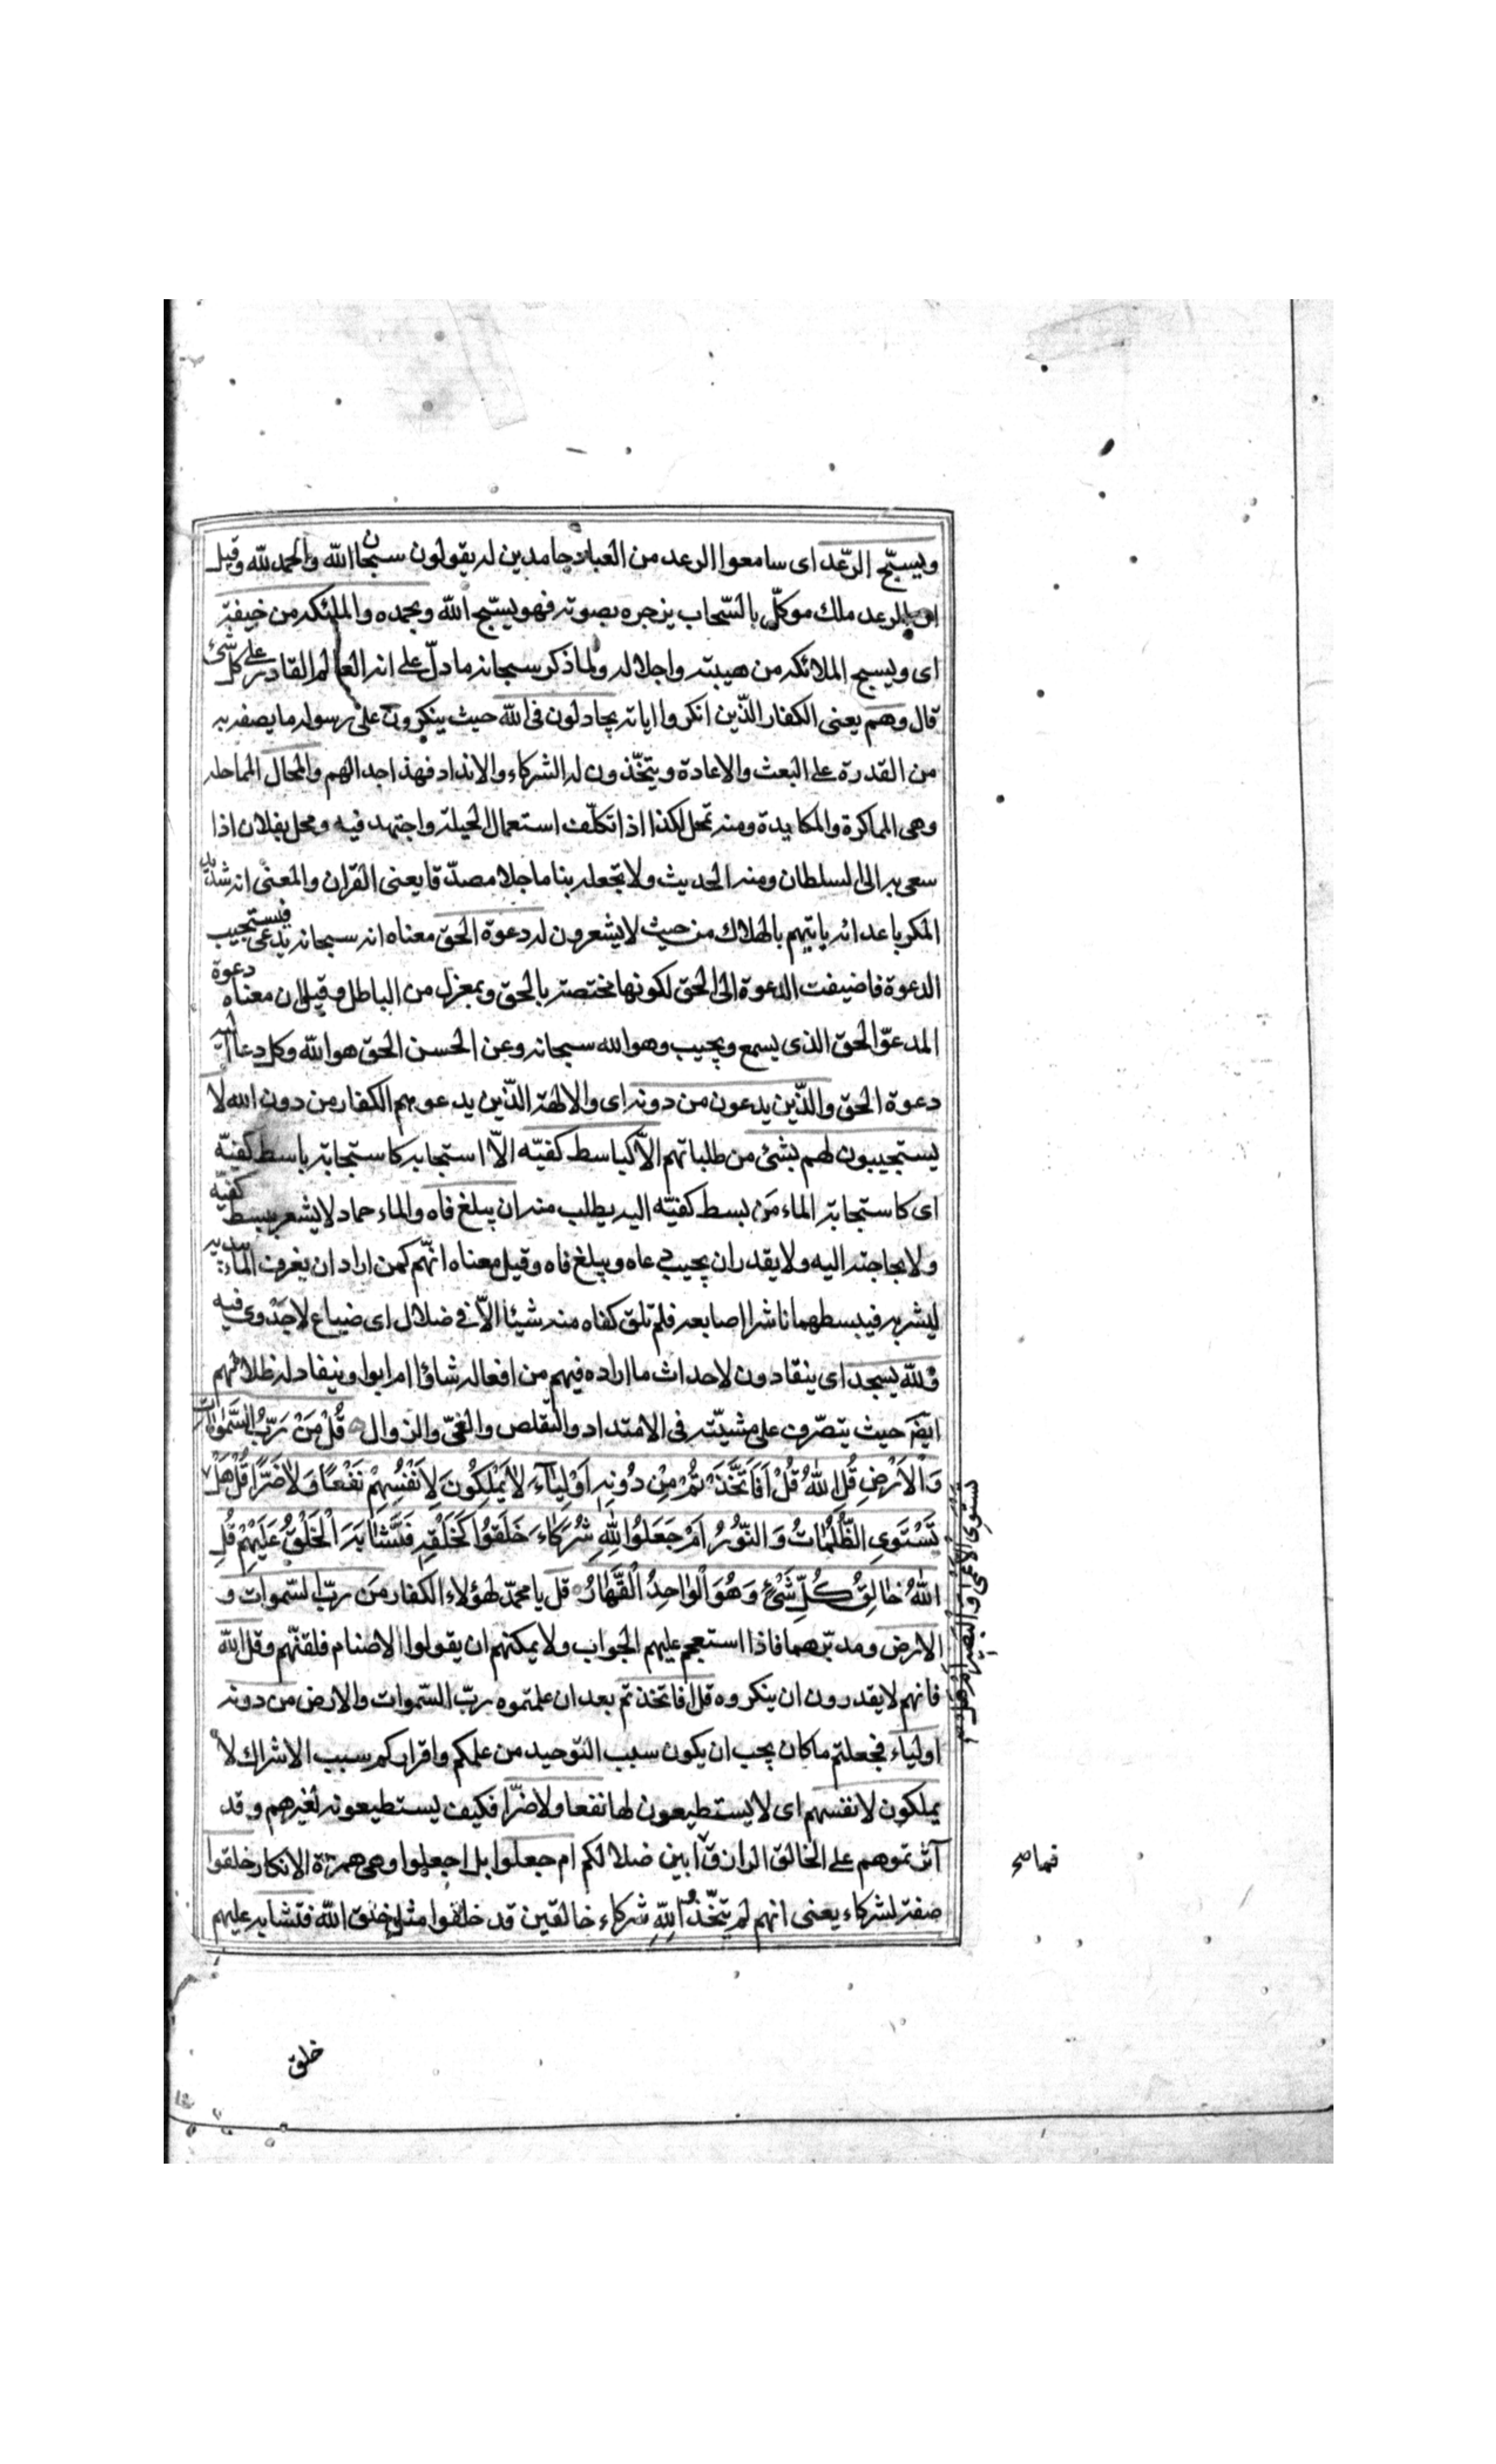 ويسبّح الرّعد اى سامعوا الرعد من العباد حامدين له يقولون سبحان الله والحمد لله وقيل
الرعد ملك موكلّ بالسّحاب يزجره بصوته فهو يسبّح الله وبحمده والملئكه من خيفته
اى ويسبح الملائكه من هيبته واجلاله ولما ذكر سبحانه ما دلّ على انه العالم القادر على كل شئ
قال وهم يعنى الكفار الّذين انكروا اياته يجادلون فى الله حيث ينكرون على رسوله ما يصفه به
من القدرة على البعث والاعادة ويتخّذون له الشركاء والانداد فهذا جدالهم والمحال المماحله
وهى المماكرة والمكايدة ومنه تمحل لكذا اذا تكلّف استعمال الحيلة واجتهد فيه ومحل بفلان اذا
سعى به الى السلطان ومنه الحديث ولا تجعله بنا ماحلا مصدّقا يعنى القران والمعنى انه شديد
المكر باعدائه ياتيهم بالهلاك من حيث لا يشعرون له دعوة الحق معناه انه سبحانه يدعى فيستجيب
الدعوة فاضيفت الدعوة الى الحق لكونها مختصة بالحق وبمعزل من الباطل وقيل ان معناه دعوة
المدعوّ الحق الذى يسمع ويجيب وهو الله سبحانه وعن الحسن الحق هو الله وكل دعا اليه
دعوة الحق والّذين يدعون من دونه اى والالهة الّذين يدعوهم الكفار من دون الله لا
يستجيبون لهم بشئ من طلباتهم الاّ كباسط كفيّه الاّ استجابه كاستجابة باسط كفيّه
اى كاستجابة الماء مَن بسط كفيّه اليه يطلب منه ان يبلغ فاه والماء جماد لا يشعر ببسط كفيّه
ولا بحاجته اليه ولا يقدر ان يجيب دعاه ويبلغ فاه وقيل معناه انهّم كمن اراد ان يغرف الماء بيديه
ليشربه فيبسطهما ناشرا اصابعه فلم تلق كفاه منه شيئا الاّ فى ضلال اى ضياع لا جَدْوى فيه
ولله يسجد اى ينقادون لاحداث ما اراده فيهم من افعاله شاؤا ام ابوا وينقاد له ظلالهم
ايضَ حيث يتصّرف على مشيّته فى الامتداد والتّقلص والفىّ والزوال قُلْ مَنْ رَبُّ السَّمٰوات
وَالْاَرْضِ قُلِ اللهُ قُلْ اَفَاتَّخَذْتُمْ مِنْ دُونِهِ اَوْلِيَآءَ لاٰ يَمْلِكُونَ لِاَنْفُسِهِمْ نَفْعًا وَلاٰ ضَرًّا قُلْ هَلْ
يستوى الاعمى والبصير ام هل
تَسْتَوِى الظُّلُمٰاتُ وَالنُّورُ اَمْ جَعَلُوا لِلّٰهِ شُرَكَاءَ خَلَقُوا كَخَلْقِهِ فَتَشَابَهَ الْخَلْقُ عَلَيْهِمْ قُلِ
اللهُ خٰالِقُ كُلِّ شَىْءٍ وَهُوَ الْوٰاحِدُ الْقَهّٰارُ قل يا محمّد لهؤلاء الكفار مَن ربّ السّموات و
الارض ومدبّرهما فاذا استعجم عليهم الجواب ولا يمكنهم ان يقولوا الاصنام فلقنّهم وقل الله
فانهم لا يقدرون ان ينكروه قل افاتخذتم بعد ان علمتموه ربّ السّموات والارض من دونه
اولياء فجعلتم ما كان يجب ان يكون سبب التوحيد من علمكم واقراركم سبب الاشراك لا
يملكون لانفسهم اى لا يستطيعون لها نفعا ولا ضرّا فكيف يستطيعونه لغيرهم وقد
آثرتموهم على الخالق الرازق ابين ضلالكم ام جعلوا بل اجعلوا وهى همزة الانكار خلقوا
فما صح
صفة لشركاء يعنى انهم لم يتخّذوا لِلّٰهِ شركاء خالقين قد خلقوا مثل خلق الله فتشابه عليهم
خلق